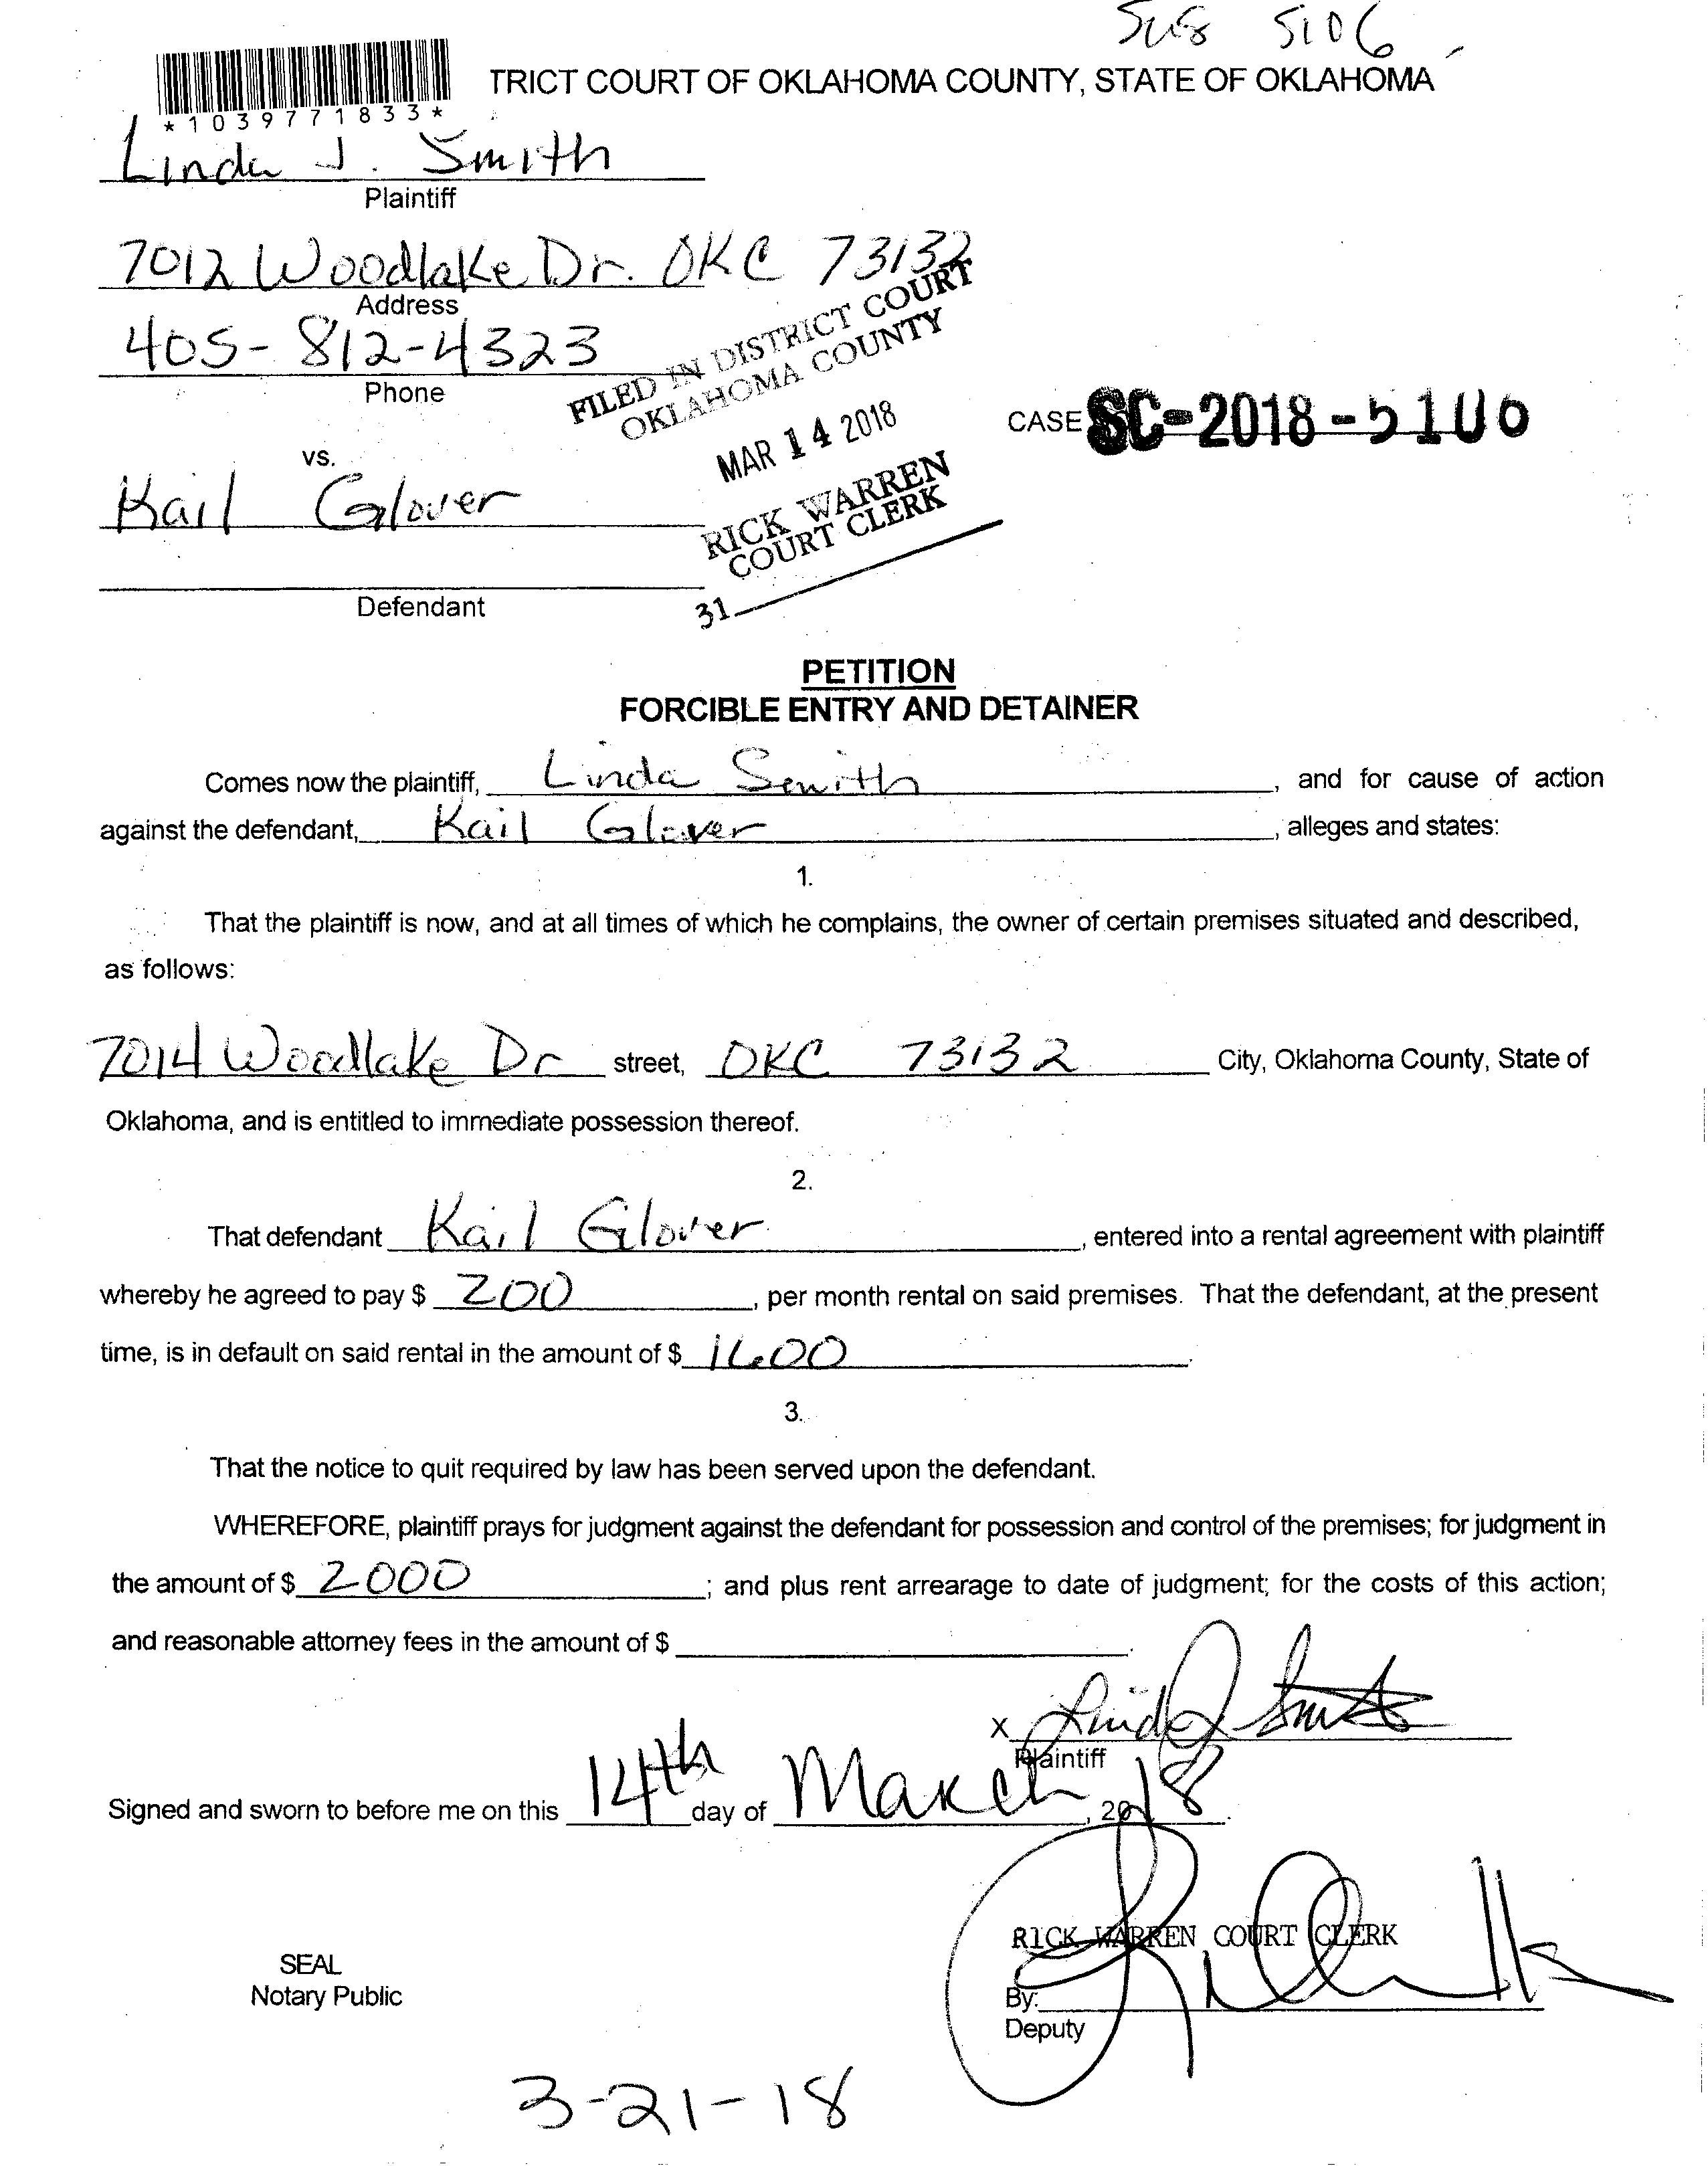 5106
TRICT COURT OF OKLAHOMA COUNTY, STATE OF OKLAHOMA
*1039771833*
Linda J. Smith
Plaintiff
7012 Woodlake Dr. OKC 73132
Address
405-812-4323
Phone
FILED IN DISTRICT COURT
OKLAHOMA COUNTY
MAR 14 2018
RICK WARREN
COURT CLERK
31
CASE SC-2018-5106
vs.
Kail Glover
Defendant
PETITION
FORCIBLE ENTRY AND DETAINER
Comes now the plaintiff, Linda Smith, and for cause of action
against the defendant, Kail Glover, alleges and states:
1.
That the plaintiff is now, and at all times of which he complains, the owner of certain premises situated and described,
as follows:
7014 Woodlake Dr street, OKC 73132 City, Oklahoma County, State of
Oklahoma, and is entitled to immediate possession thereof.
2.
That defendant Kail Glover, entered into a rental agreement with plaintiff
whereby he agreed to pay $ 200, per month rental on said premises. That the defendant, at the present
time, is in default on said rental in the amount of $ 1600.
3.
That the notice to quit required by law has been served upon the defendant.
WHEREFORE, plaintiff prays for judgment against the defendant for possession and control of the premises; for judgment in
the amount of $ 2000; and plus rent arrearage to date of judgment; for the costs of this action;
and reasonable attorney fees in the amount of $ .
X Linda J Smith
Plaintiff
Signed and sworn to before me on this 14th day of March, 2018.
RICK WARREN COURT CLERK
SEAL
Notary Public
By:
Deputy
3-21-18